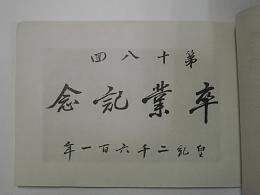 第十八回
卒業記念
皇紀二千六百一年